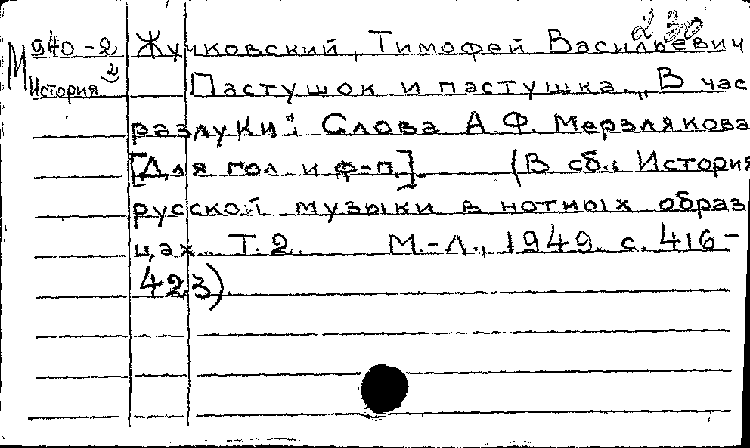 230
М 940-2 Жучковский, Тимофей Васильевич
История 2 Пастушок и пастушка „В час
разлуки": Слова А.Ф. Мерзлякова
[Для гол. и ф-п.] (В сб.: История
русской музыки в нотных образ-
цах. Т. 2. М.-Л., 1949. с. 416-
423)